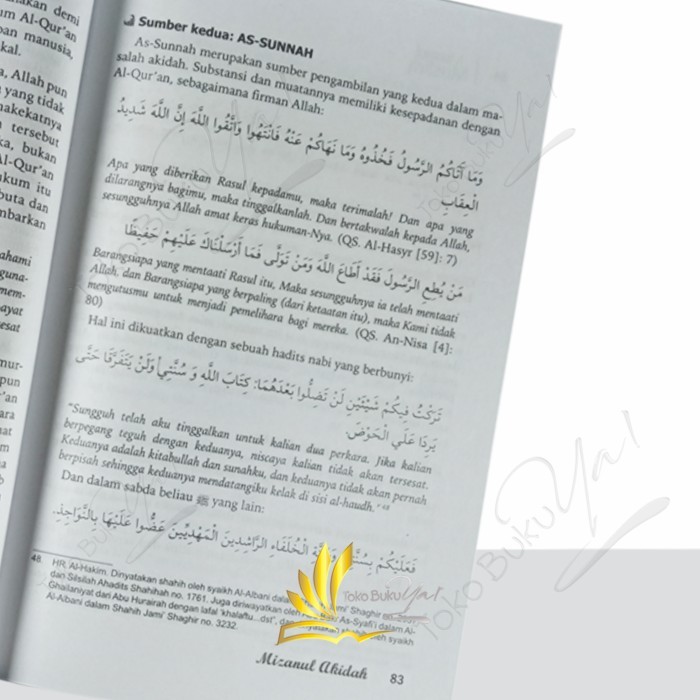 akan demi
um Al-Qur'an
an manusia,
kal.
a, Allah pun
yang tidak
akekatnya
tersebut
ka, bukan
Al-Qur'an
ukum itu
buta dan
mbarkan
ahami
guna-
mem-
ayat
esat
mur-
pun
'an
ara
at
m
a
b
i
Sumber kedua: AS-SUNNAH
As-Sunnah merupakan sumber pengambilan yang kedua dalam ma-
salah akidah. Substansi dan muatannya memiliki kesepadanan dengan
Al-Qur'an, sebagaimana firman Allah:
وَمَا آتَاكُمُ الرَّسُولُ فَخُذُوهُ وَمَا نَهَاكُمْ عَنْهُ فَانْتَهُوا وَاتَّقُوا اللَّهَ إِنَّ اللَّهَ شَدِيدُ
الْعِقَابِ
Apa yang diberikan Rasul kepadamu, maka terimalah! Dan apa yang
dilarangnya bagimu, maka tinggalkanlah. Dan bertakwalah kepada Allah,
sesungguhnya Allah amat keras hukuman-Nya. (QS. Al-Hasyr [59]: 7)
مَنْ يُطِعِ الرَّسُولَ فَقَدْ أَطَاعَ اللَّهَ وَمَنْ تَوَلَّى فَمَا أَرْسَلْنَاكَ عَلَيْهِمْ حَفِيظًا
Barangsiapa yang mentaati Rasul itu, Maka sesungguhnya ia telah mentaati
Allah. dan Barangsiapa yang berpaling (dari ketaatan itu), maka Kami tidak
mengutusmu untuk menjadi pemelihara bagi mereka. (QS. An-Nisa [4]:
80)
Hal ini dikuatkan dengan sebuah hadits nabi yang berbunyi:
تَرَكْتُ فِيكُمْ شَيْئَيْنِ لَنْ تَضِلُّوا بَعْدَهُمَا: كِتَابَ اللَّهِ وَ سُنَّتِيْ وَلَنْ يَتَفَرَّقَا حَتَّى
يَرِدَا عَلَي الْحَوْضَ.
"Sungguh telah aku tinggalkan untuk kalian dua perkara. Jika kalian
berpegang teguh dengan keduanya, niscaya kalian tidak akan tersesat.
Keduanya adalah kitabullah dan sunahku, dan keduanya tidak akan pernah
berpisah sehingga keduanya mendatangiku kelak di sisi al-haudh." 48
Dan dalam sabda beliau ﷺ yang lain:
فَعَلَيْكُمْ الْخُلَفَاءِ الرَّاشِدِينَ الْمَهْدِيِّينَ عَضُّوا عَلَيْهَا بِالنَّوَاجِذِ.
48. HR. Al-Hakim. Dinyatakan shahih oleh syaikh Al-Albani Jami' Shaghir
dan Silsilah Ahadits Shahihah no. 1761. Juga diriwayatkan As-Syafi'i dalam Al-
Ghailaniyat dari Abu Hurairah dengan lafal 'khalaftu...dst", oleh syaikh
Al-Albani dalam Shahih Jami' Shaghir no. 3232.
Toko Buku Ya!
Mizanul Akidah 83
TOKO BUKU Ya!
TOKO BUKU Ya!